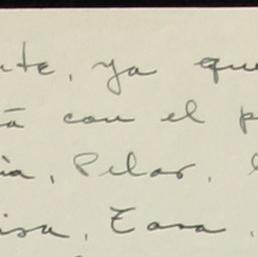 nte, ya que
á con el p
ia, Pilar,
isa, Zara,